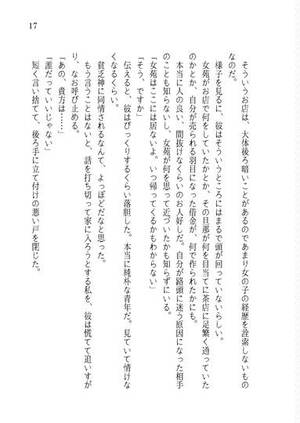 17
そういうお店は、大体後ろ暗いことがあるのであまり女の子の経歴を詮索しないもの
なのだ。
様子を見るに、彼はそういうところにはまるで頭が回っていないようだった。
女苑がお店で何をしていたかとか、その旦那が何を目当てに茶店に足繁く通っていた
のかとか、自分が売られる羽目になった借金が、何で作られたかにも。
本当に人の良い、間抜けなくらいのお人好しだ。自分が路頭に迷う原因になった相手
のことも知らないし、女苑が何を思って近づいたかも知らずにいる。
「女苑はここには居ないよ。いつ帰ってくるかもわからない」
「そう、ですか……」
伝えると、彼はびっくりするくらい落胆した。本当に純朴な青年だ。見ていて情けな
くなるくらい。
貧乏神に同情されるなんて、よっぽどだなと思った。
もう言うことはないと、話を打ち切って家に入ろうとする私を、彼は慌てて追いすが
り、なお呼び止める。
「あの、貴方は……」
「誰だっていいじゃない」
短く言い捨てて、後ろ手に立て付けの悪い戸を閉じた。